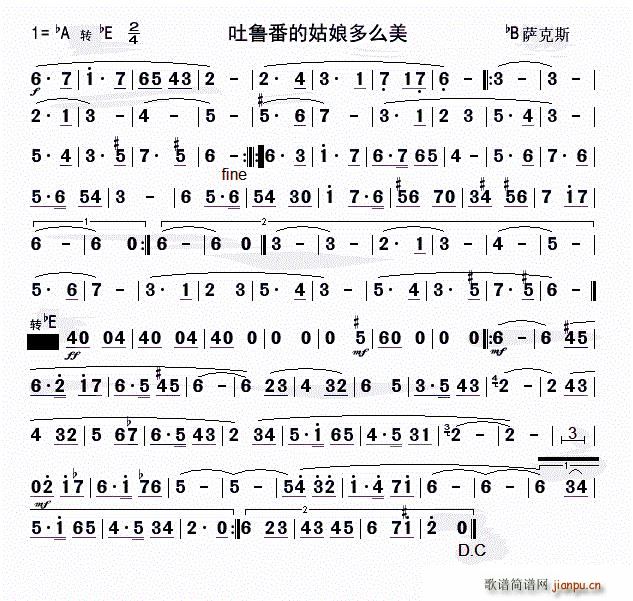 1=♭A 转 ♭E 2/4 吐鲁番的姑娘多么美 ♭B萨克斯
6·7|i·7|65 43|2 -|2·4|3·1|7 17|6 -|:3 -|3 -|
2·1|3 -|4 -|5 -|#5·6|7 -|3·1|2 3|5·4|3 -|
5·4|3·#5|7·#5|6 -:|:6·3|i·7|6·7 65|4 -|5·6|7·6|
fine
5·6 54|3 -|6 5·6|54 30|i 7·6|#56 70|#34 #56|7 i7|
1 2
6 -|6 0:|6 -|6 0|3 -|3 -|2·1|3 -|4 -|5 -|
5·6|7 -|3·1|2 3|5·4|3 -|5·4|3·#5|7·#5|6 -|
转♭E
40 04|40 04|40 0|0 0|0 #5|60 0|0 0|:6 -|6 #45|
ff mf mf
6·2 i7|6·5 #45|6 -|6 23|4 32|6 5|3·5 43|2 -|2 43|
4 32|5 6♭7|6·5 43|2 34|5·i 65|4·5 31|2 -|2 -|3|
1
02 i♭7|6·i ♭76|5 -|5 -|54 32|i·4 7i|6 -|6 -|6 34|
mf
2
5·i 65|4·5 34|2·0:|6 23|43 45|6 7#i|2 0|
D.C
歌谱简谱网
jianpu.cn